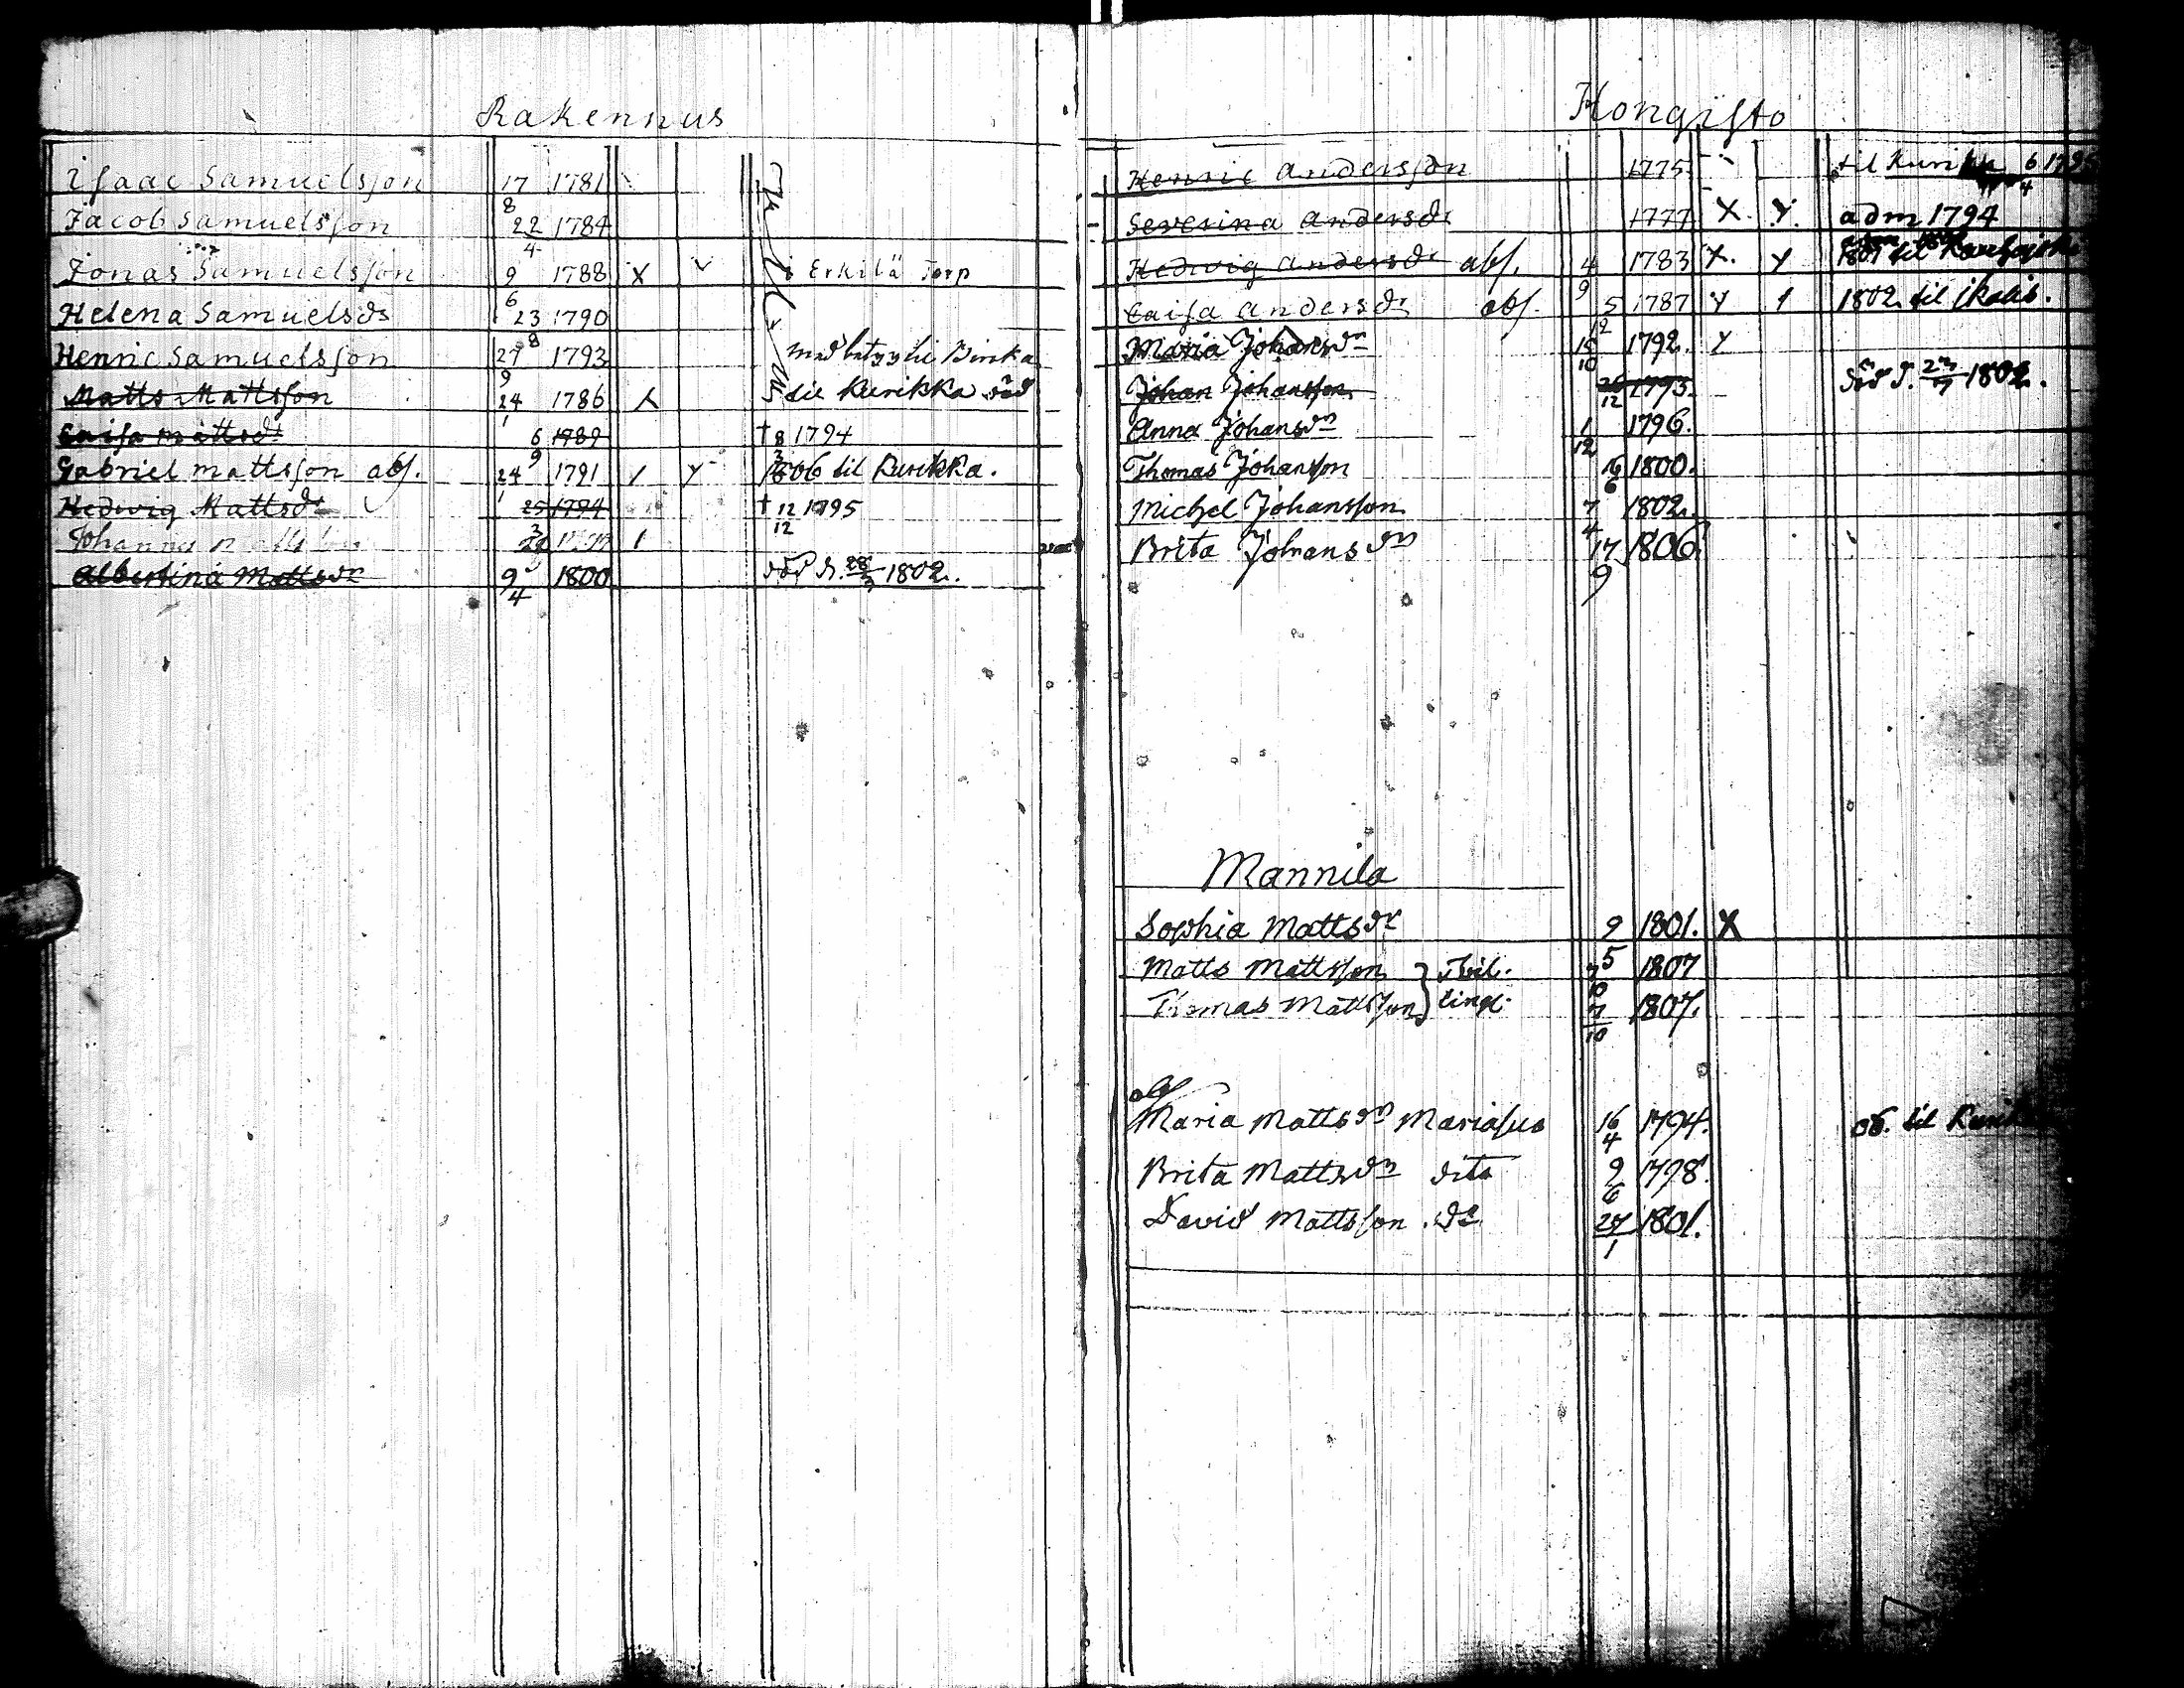 Rakennus
Isaac Samuelsson 17/8 1781
Jacob Samuelsson 22/4 1784
Jonas Samuelsson 9/6 1788 X Erkilä Torp
Helena Samuelsdr 23/8 1790
Henric Samuelsson 27/9 1793
Matts Mattsson 24/1 1786 X Kurikka
Caisa Mattsdr 6/9 1789 † 8/3 1794
Gabriel Mattsson abs. 24/1 1791 / Y 1806 til Kurikka.
Hedwig Mattsdr 25/3 1794 † 12/12 1795
Johanna
Albertina Mattsdr 9/4 1800 död d. 28/3 1802.
Hongisto
Henric Andersson 1775 til Kurikka 6/4
Severina Andersdr 1777 X. Y. adm 1794
Hedwig Andersdr abs. 4/9 1783 X. Y 1801 til
Caisa Andersdr abs. 5/12 1787 Y 1 1802 til Ikalis.
Maria Johansdr 15/10 1792. Y
Johan Johansson 26/12 1793. död d. 1802.
Anna Johansdr 1/12 1796.
Thomas Johansson 16/6 1800.
Michel Johansson 7/4 1802.
Brita Johansdr 17/9 1806.
Mannila
Sophia Mattsdr 9/5 1801. X
Matts Mattsson } Tvil- 7/10 1807
Thomas Mattsson } lingr. 7/10 1807.
abs
Maria Mattsdr Mariasus 16/4 1794. 06. til
Brita Mattsdr dito 9/6 1798.
David Mattsson. do 27/1 1801.